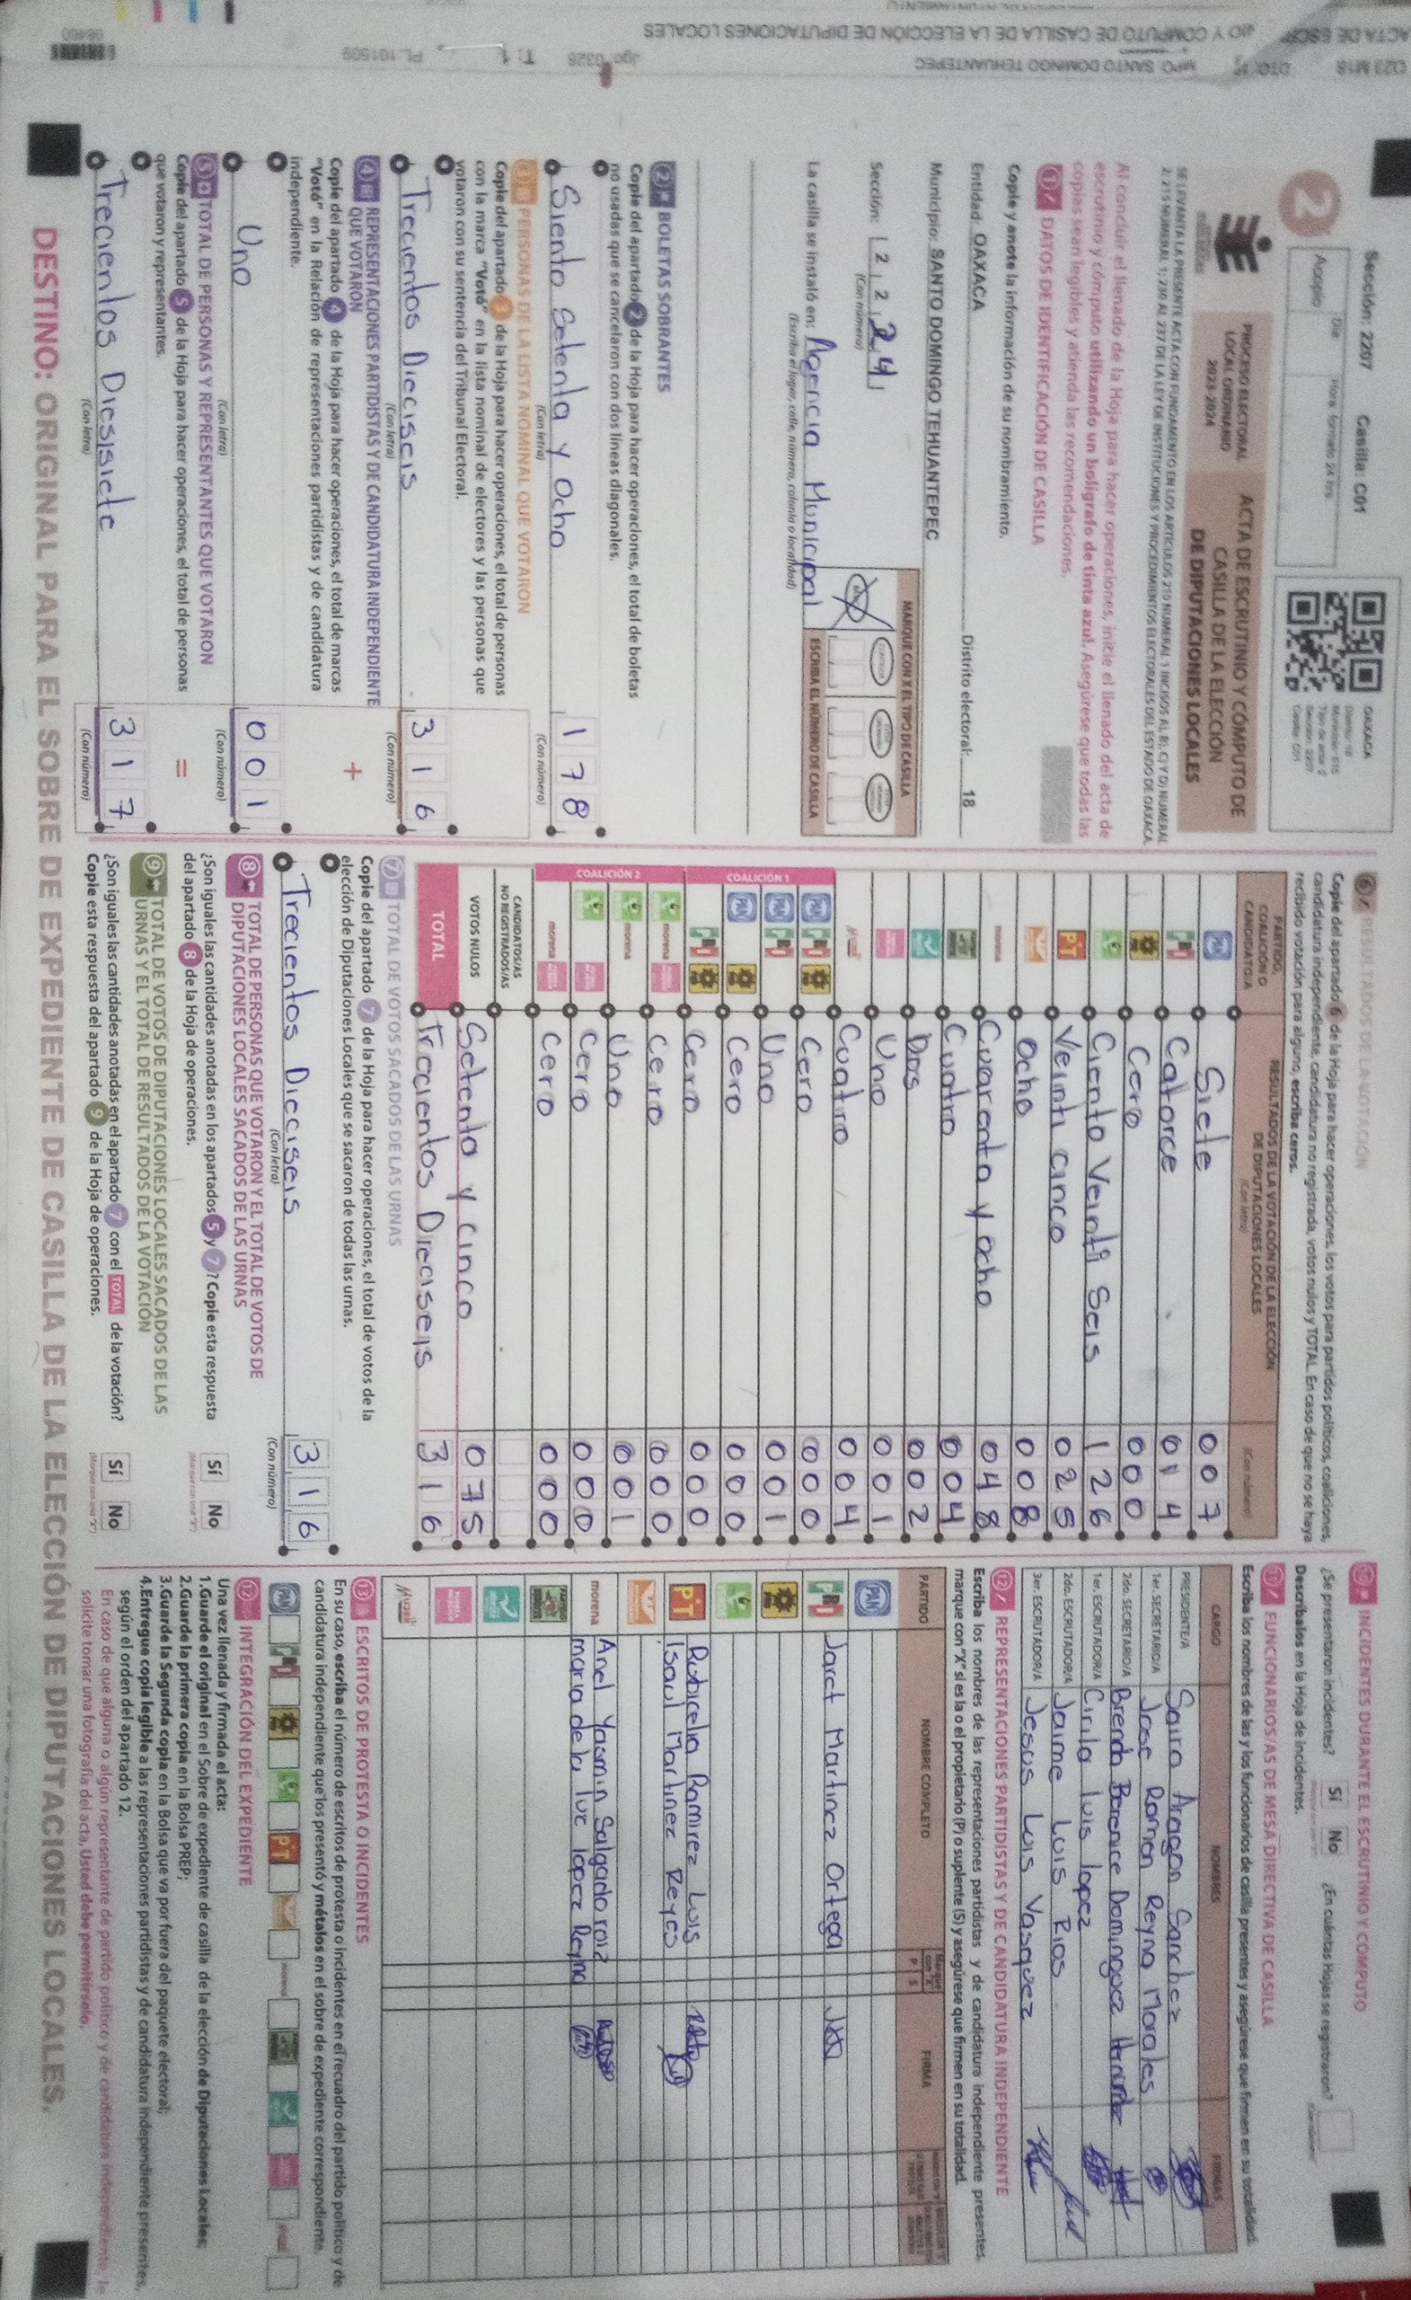 Sección: 2207 Casilla: C01
2
Acopio Día Hora formato 24 hrs
OAXACA
PROCESO ELECTORAL LOCAL ORDINARIO 2023-2024
ACTA DE ESCRUTINIO Y CÓMPUTO DE CASILLA DE LA ELECCIÓN DE DIPUTACIONES LOCALES
Al concluir el llenado de la Hoja para hacer operaciones, inicie el llenado del acta de
escrutinio y cómputo utilizando un bolígrafo de tinta azul. Asegúrese que todas las
copias sean legibles y atienda las recomendaciones.
1 DATOS DE IDENTIFICACIÓN DE CASILLA
Copie y anote la información de su nombramiento.
Entidad: OAXACA Distrito electoral: 18
Municipio: SANTO DOMINGO TEHUANTEPEC
Sección: 2 2 2 4
(Con número)
MARQUE CON X EL TIPO DE CASILLA
ESCRIBA EL NÚMERO DE CASILLA
La casilla se instaló en: Agencia Municipal
(Escriba el lugar, calle, número, colonia o localidad)
2 BOLETAS SOBRANTES
Copie del apartado 2 de la Hoja para hacer operaciones, el total de boletas
no usadas que se cancelaron con dos líneas diagonales.
Siento Setenta y Ocho 178
(Con letra) (Con número)
3 PERSONAS DE LA LISTA NOMINAL QUE VOTARON
Copie del apartado 3 de la Hoja para hacer operaciones, el total de personas
con la marca "Votó" en la lista nominal de electores y las personas que
votaron con su sentencia del Tribunal Electoral.
Trecientos Dieciseis 316
(Con letra) (Con número)
4 REPRESENTACIONES PARTIDISTAS Y DE CANDIDATURA INDEPENDIENTE
QUE VOTARON
+
Copie del apartado 4 de la Hoja para hacer operaciones, el total de marcas
"Votó" en la Relación de representaciones partidistas y de candidatura
independiente.
Uno 001
(Con letra) (Con número)
5 TOTAL DE PERSONAS Y REPRESENTANTES QUE VOTARON
=
Copie del apartado 5 de la Hoja para hacer operaciones, el total de personas
que votaron y representantes.
Trecientos Diesisiete 317
(Con letra) (Con número)
6 RESULTADOS DE LA VOTACIÓN
Copie del apartado 6 de la Hoja para hacer operaciones, los votos para partidos políticos, coaliciones,
candidatura independiente, candidatura no registrada, votos nulos y TOTAL. En caso de que no se haya
recibido votación para alguno, escriba ceros.
PARTIDO, COALICIÓN O CANDIDATO/A
RESULTADOS DE LA VOTACIÓN DE LA ELECCIÓN DE DIPUTACIONES LOCALES
(Con letra) (Con número)
PAN Siete 007
PRI Catorce 014
Cero 000
Ciento Veinti Seis 126
PT Veinti cinco 025
ocho 008
morena Cuarenta y ocho 048
Cuatro 004
Dos 002
Uno 001
Cuatro 004
COALICIÓN 1
PAN PRI Cero 000
PAN PRI Uno 001
PAN Cero 000
PRI Cero 000
COALICIÓN 2
morena Cero 000
morena Uno 001
Cero 000
morena Cero 000
CANDIDATOS/AS NO REGISTRADOS/AS
VOTOS NULOS Setenta y cinco 075
TOTAL Trecientos Dieciseis 316
7 TOTAL DE VOTOS SACADOS DE LAS URNAS
Copie del apartado 7 de la Hoja para hacer operaciones, el total de votos de la
elección de Diputaciones Locales que se sacaron de todas las urnas.
Trecientos Dieciseis 316
(Con letra) (Con número)
8 TOTAL DE PERSONAS QUE VOTARON Y EL TOTAL DE VOTOS DE
DIPUTACIONES LOCALES SACADOS DE LAS URNAS
¿Son iguales las cantidades anotadas en los apartados 5 y 7? Copie esta respuesta
del apartado 8 de la Hoja de operaciones.
Sí No
9 TOTAL DE VOTOS DE DIPUTACIONES LOCALES SACADOS DE LAS
URNAS Y EL TOTAL DE RESULTADOS DE LA VOTACIÓN
¿Son iguales las cantidades anotadas en el apartado 7 con el TOTAL de la votación?
Copie esta respuesta del apartado 9 de la Hoja de operaciones.
Sí No
10 INCIDENTES DURANTE EL ESCRUTINIO Y CÓMPUTO
¿Se presentaron incidentes? Sí No ¿En cuántas Hojas se registraron?
Descríbalos en la Hoja de incidentes.
11 FUNCIONARIOS/AS DE MESA DIRECTIVA DE CASILLA
Escriba los nombres de las y los funcionarios de casilla presentes y asegúrese que firmen en su totalidad.
CARGO NOMBRES FIRMAS
PRESIDENTE/A Sairo Aragon Sanchez
1er. SECRETARIO/A Jose Roman Reyna Morales
2do. SECRETARIO/A Brenda Berenice Dominguez
1er. ESCRUTADOR/A Cirila Luis lopez
2do. ESCRUTADOR/A Jaime Luis Rios
3er. ESCRUTADOR/A Jesus Luis Vasquez
12 REPRESENTACIONES PARTIDISTAS Y DE CANDIDATURA INDEPENDIENTE
Escriba los nombres de las representaciones partidistas y de candidatura independiente presentes,
marque con "X" si es la o el propietario (P) o suplente (S) y asegúrese que firmen en su totalidad.
PARTIDO NOMBRE COMPLETO P S FIRMA
PAN
PRI Jaret Martinez Ortega
PT Rubicelia Ramirez Luis
Isaul Martinez Reyes
morena Anel Yasmin Salgado roiz
maria de la luz lopez Reyna
13 ESCRITOS DE PROTESTA O INCIDENTES
En su caso, escriba el número de escritos de protesta o incidentes en el recuadro del partido político y de
candidatura independiente que los presentó y métalos en el sobre de expediente correspondiente.
PAN PRI PT morena
INTEGRACIÓN DEL EXPEDIENTE
Una vez llenada y firmada el acta:
1.Guarde el original en el Sobre de expediente de casilla de la elección de Diputaciones Locales;
2.Guarde la primera copia en la Bolsa PREP;
3.Guarde la Segunda copia en la Bolsa que va por fuera del paquete electoral;
4.Entregue copia legible a las representaciones partidistas y de candidatura independiente presentes,
según el orden del apartado 12.
En caso de que alguna o algún representante de partido político y de candidatura independiente, le
solicite tomar una fotografía del acta, Usted debe permitírselo.
DESTINO: ORIGINAL PARA EL SOBRE DE EXPEDIENTE DE CASILLA DE LA ELECCIÓN DE DIPUTACIONES LOCALES.
MPO SANTO DOMINGO TEHUANTEPEC
CÓMPUTO DE CASILLA DE LA ELECCIÓN DE DIPUTACIONES LOCALES